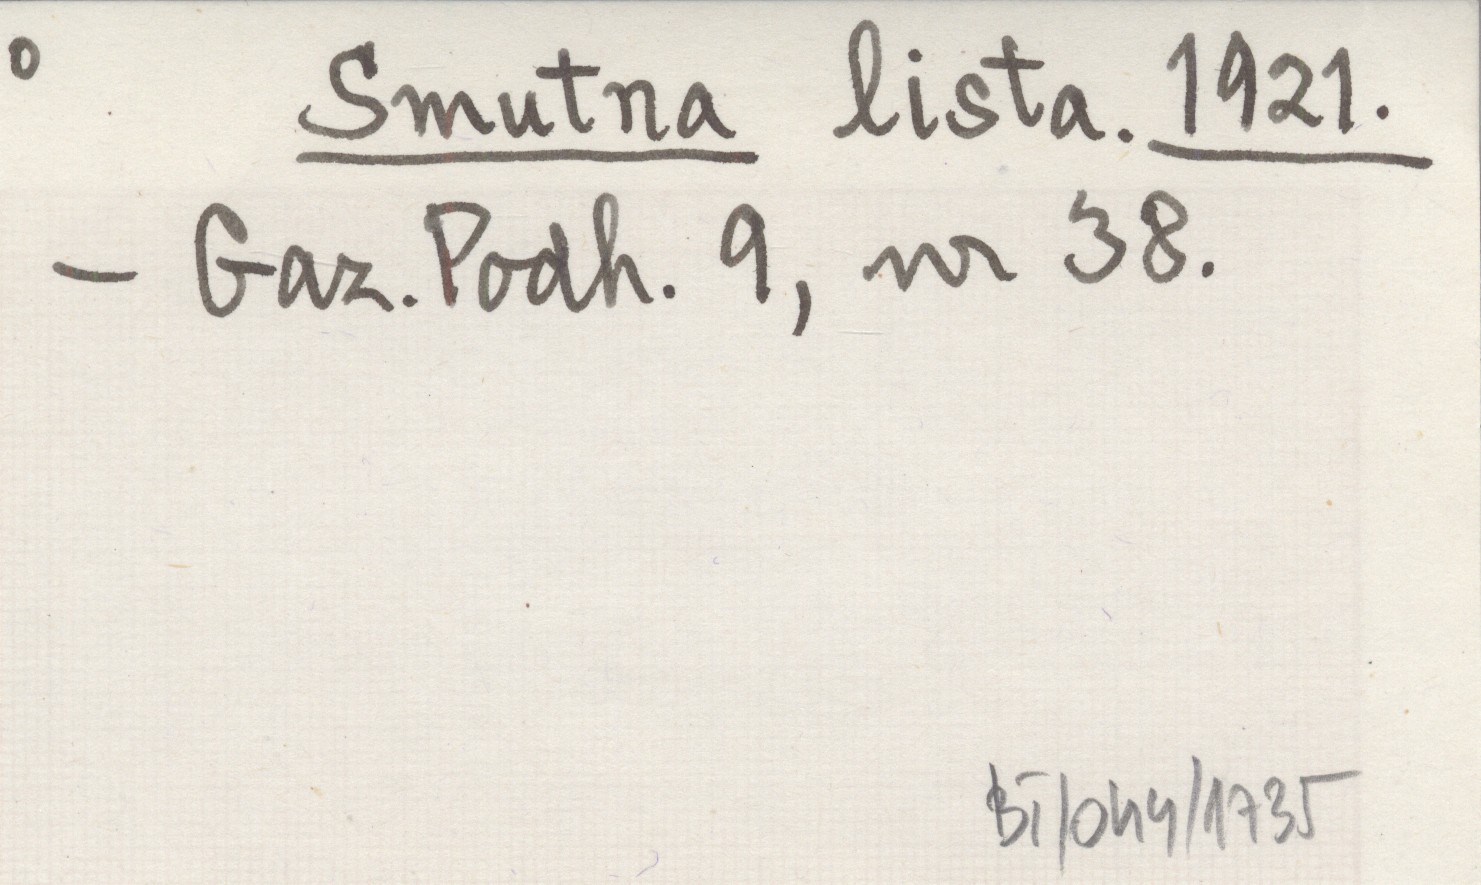 o Smutna lista. 1921.
- Gaz. Podh. 9, nr 38.
BI/OHY/1735